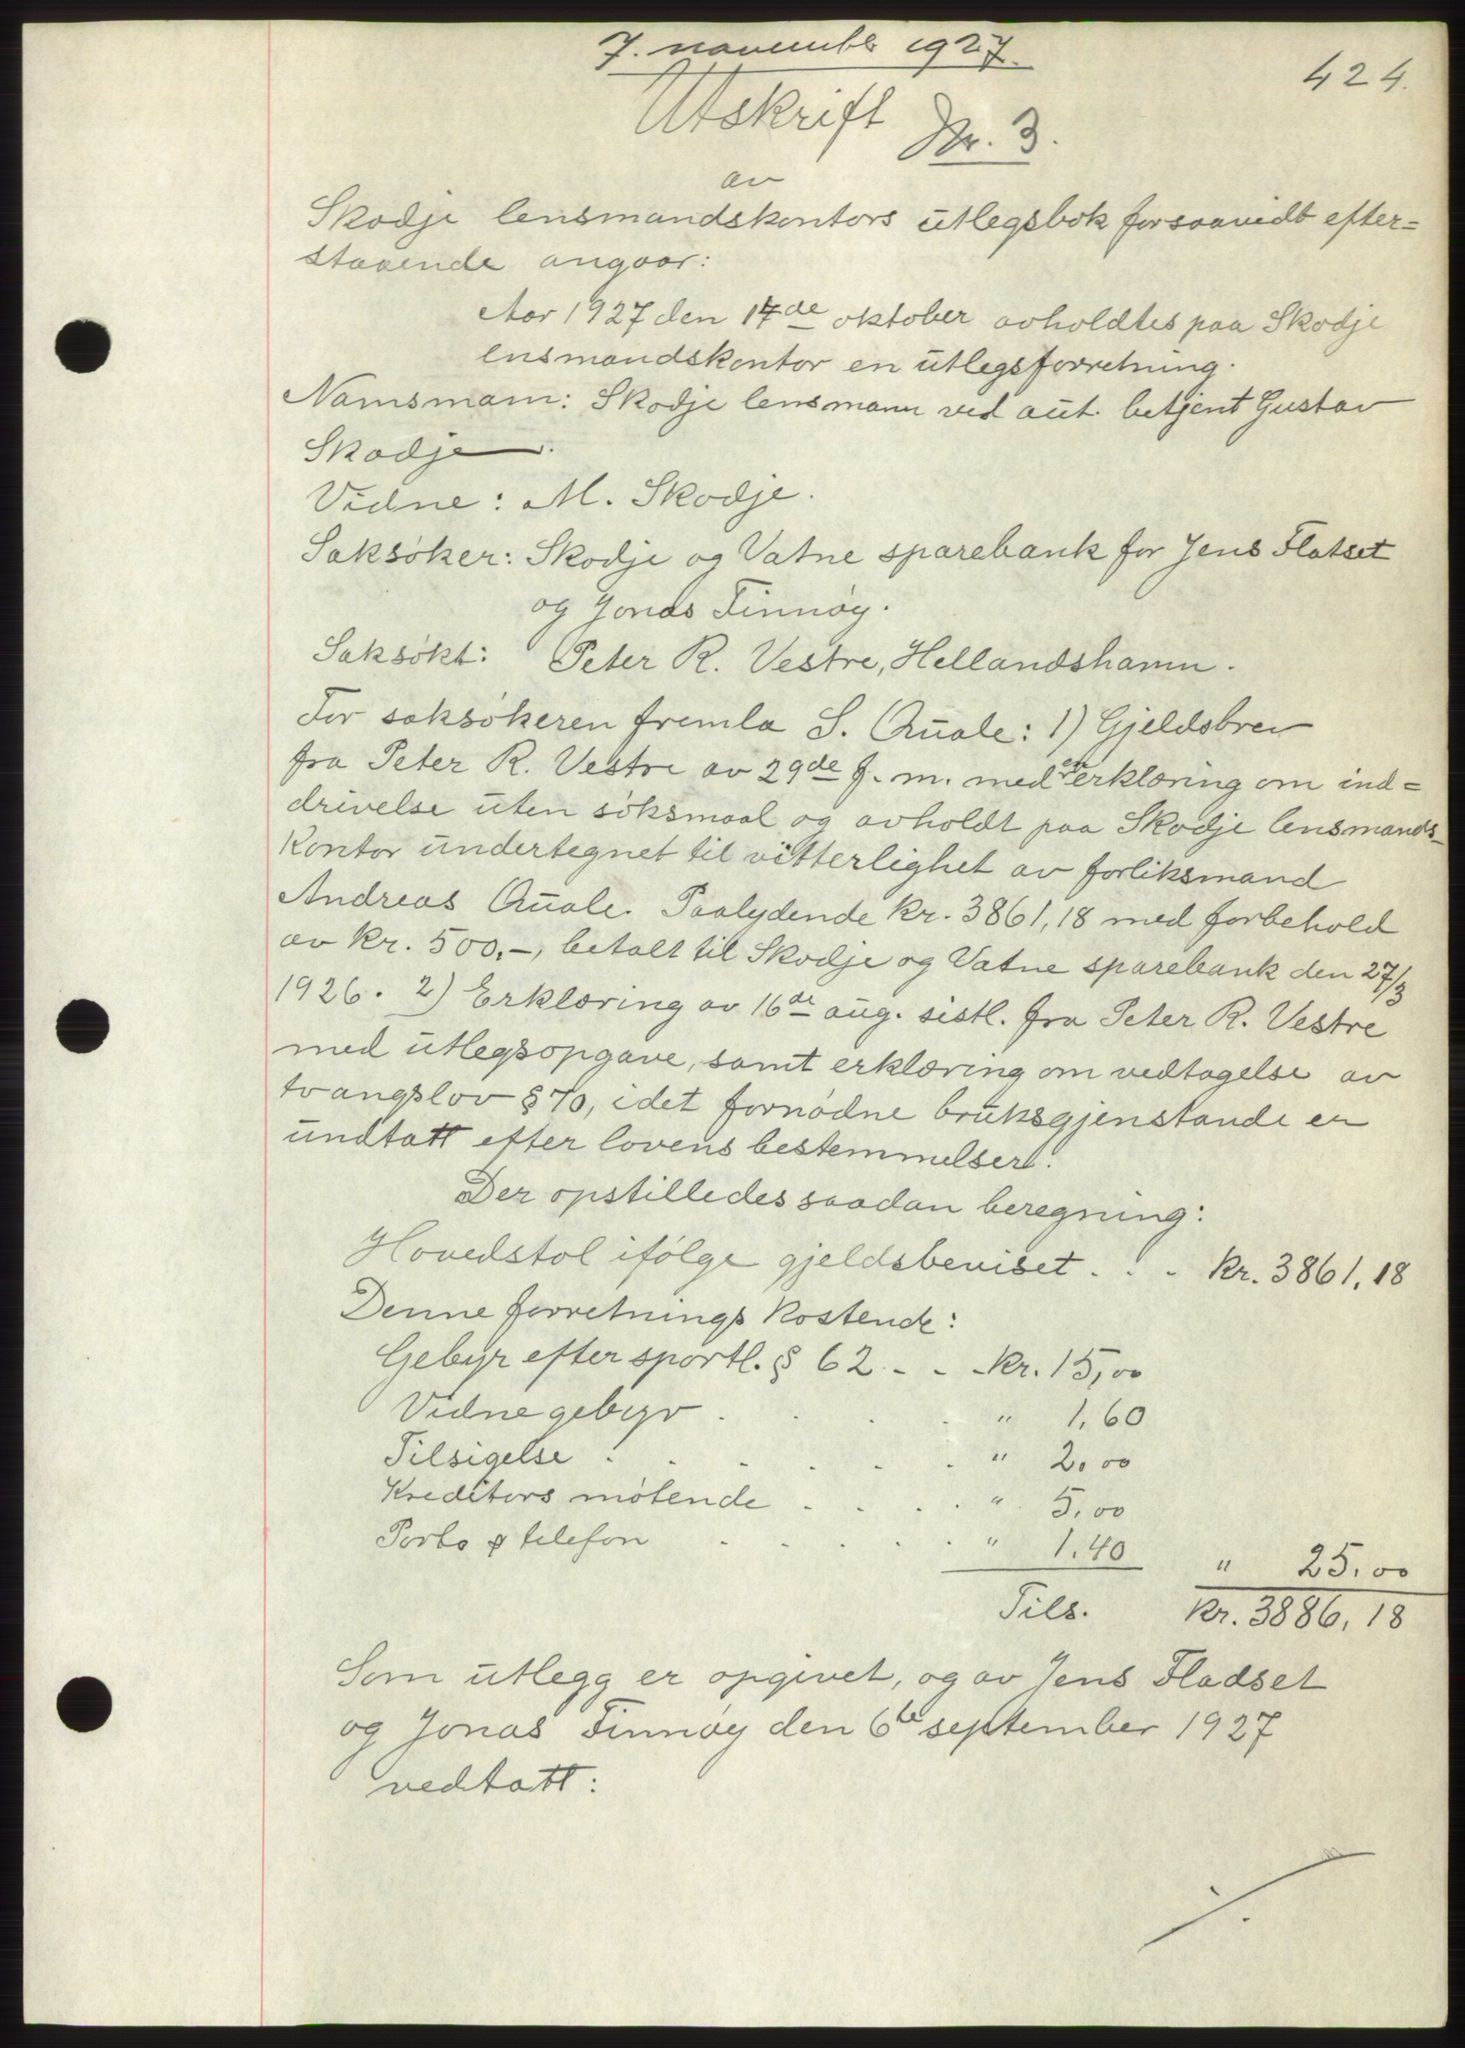 7. november 1927.
424.
Utskrift
Nr. 3.
av
Skodje lensmandskontors utlegsbok forsaavidt efter=
staaende angaar:
Aar 1927 den 17de oktober avholdtes paa Skodje
lensmandskontor en utlegsforretning.
Namsmann: Skodje lensmann ved aut. betjent Gustav
Skodje.
Vidne: M. Skodje.
Saksøker: Skodje og Vatne sparebank for Jens Flatset
og Jonas Finnøy.
Saksøkt: Peter R. Vestre, Hellandshamn.
For saksøkeren fremla S. Quale: 1) Gjeldsbrev
fra Peter R. Vestre av 29de f. m. med en erklæring om ind=
drivelse uten søksmaal og avholdt paa Skodje lensmands-
kontor undertegnet til vitterlighet av forliksmand
Andreas Quale. Paalydende kr. 3861,18 med forbehold
av kr. 500.-, betalt til Skodje og Vatne sparebank den 27/3
1926. 2) Erklæring av 16de aug. sistl. fra Peter R. Vestre
med utlegsopgave, samt erklæring om vedtagelse av
tvangslov § 70, idet fornødne bruksgjenstande er
undtatt efter lovens bestemmelser.
Der opstilledes saadan beregning:
Hovedstol ifølge gjeldsbeviset . . . kr. 3861,18
Denne forretnings kostende:
Gebyr efter sportl. § 62 - - - kr. 15,00
Vidnegebyr . . . . " 1,60
Tilsigelse . . . . . . " 2,00
Kreditors møtende . . . . " 5,00
Porto & telefon . . . . . " 1.40 " 25,00
Tils. kr. 3886,18
Som utlegg er opgivet, og av Jens Fladset
og Jonas Finnøy den 6te september 1927
vedtatt:
./.